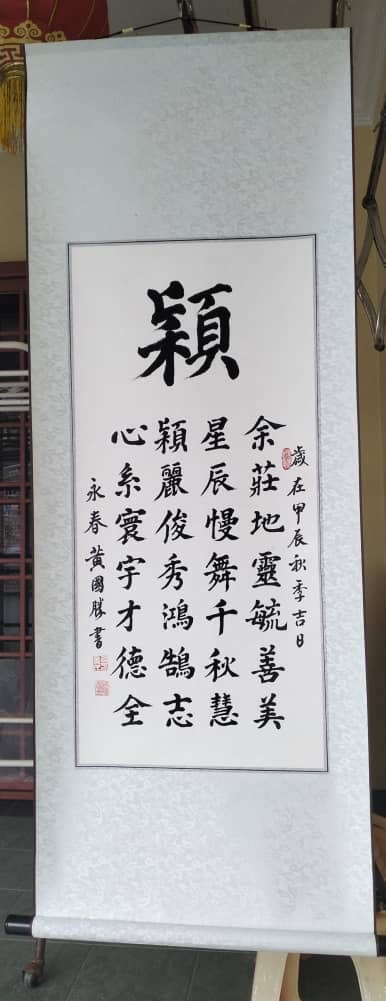 穎
歲在甲辰秋季吉日
余莊地靈毓善美
星辰慢舞千秋慧
穎麗俊秀鴻鵠志
心系寰宇才德全
永春黃國勝書